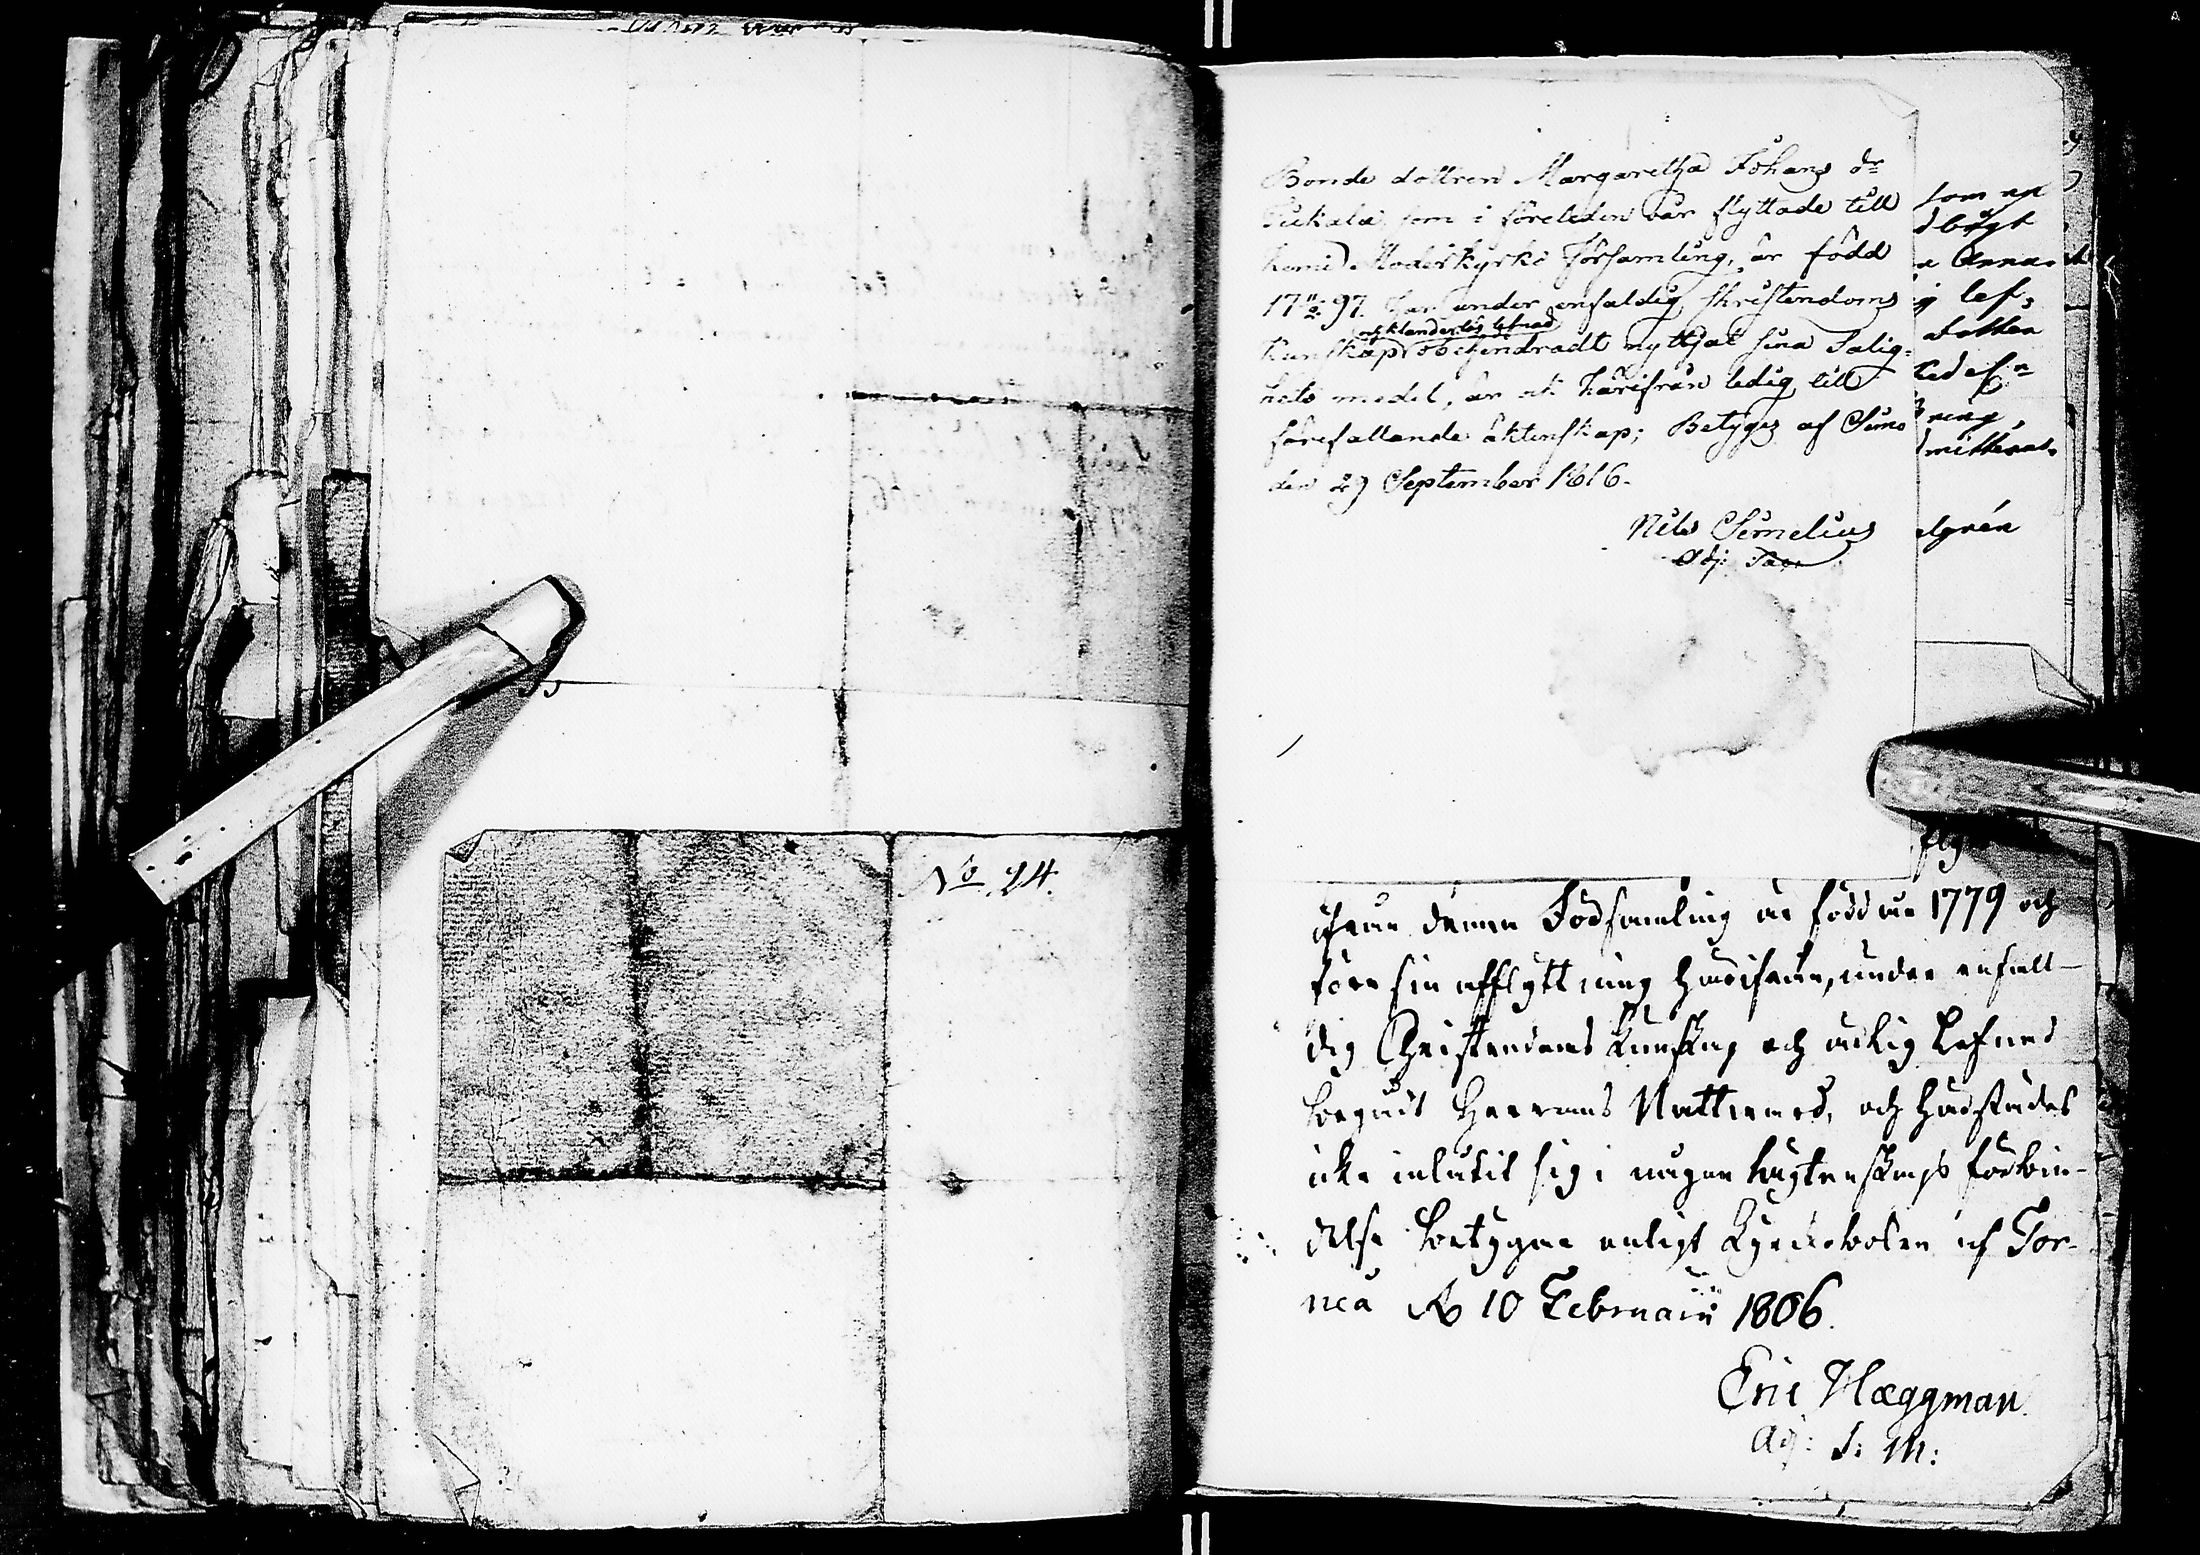 No 94.
Bonde dottren Margaretha Johans dr
Tuikala som i föreleden vår flyttade till
hemed Moderkyrko Församling, är född
17 11/2 97. har under enfaldig Christendoms
och klanderlös lefnad
kunskap obehindradt nyttjat sina Salig-
hets medel, är ock härifrån ledig till
förefallande äktenskap; Betyges af Simo
den 29 September 1816.
Nils Simelius
Adj: Past
som up
dbögt
a Anna
g lef-
Fotten
ning
mitteras
lgrén
ifrån denna Församling är född år 1779 och
före sin afflyttning härifrån, under enfall-
dig Christendoms Kunskap och ärlig Lefnad
begått Herrans Nattvard, och härstädes
icke inlåtit sig i någon ägtenskaps förbin-
delse betygar enligt Kyrckobolen af Tor-
neå d 10 Februarii 1806.
Eric Hæggman
Adj: S: M: